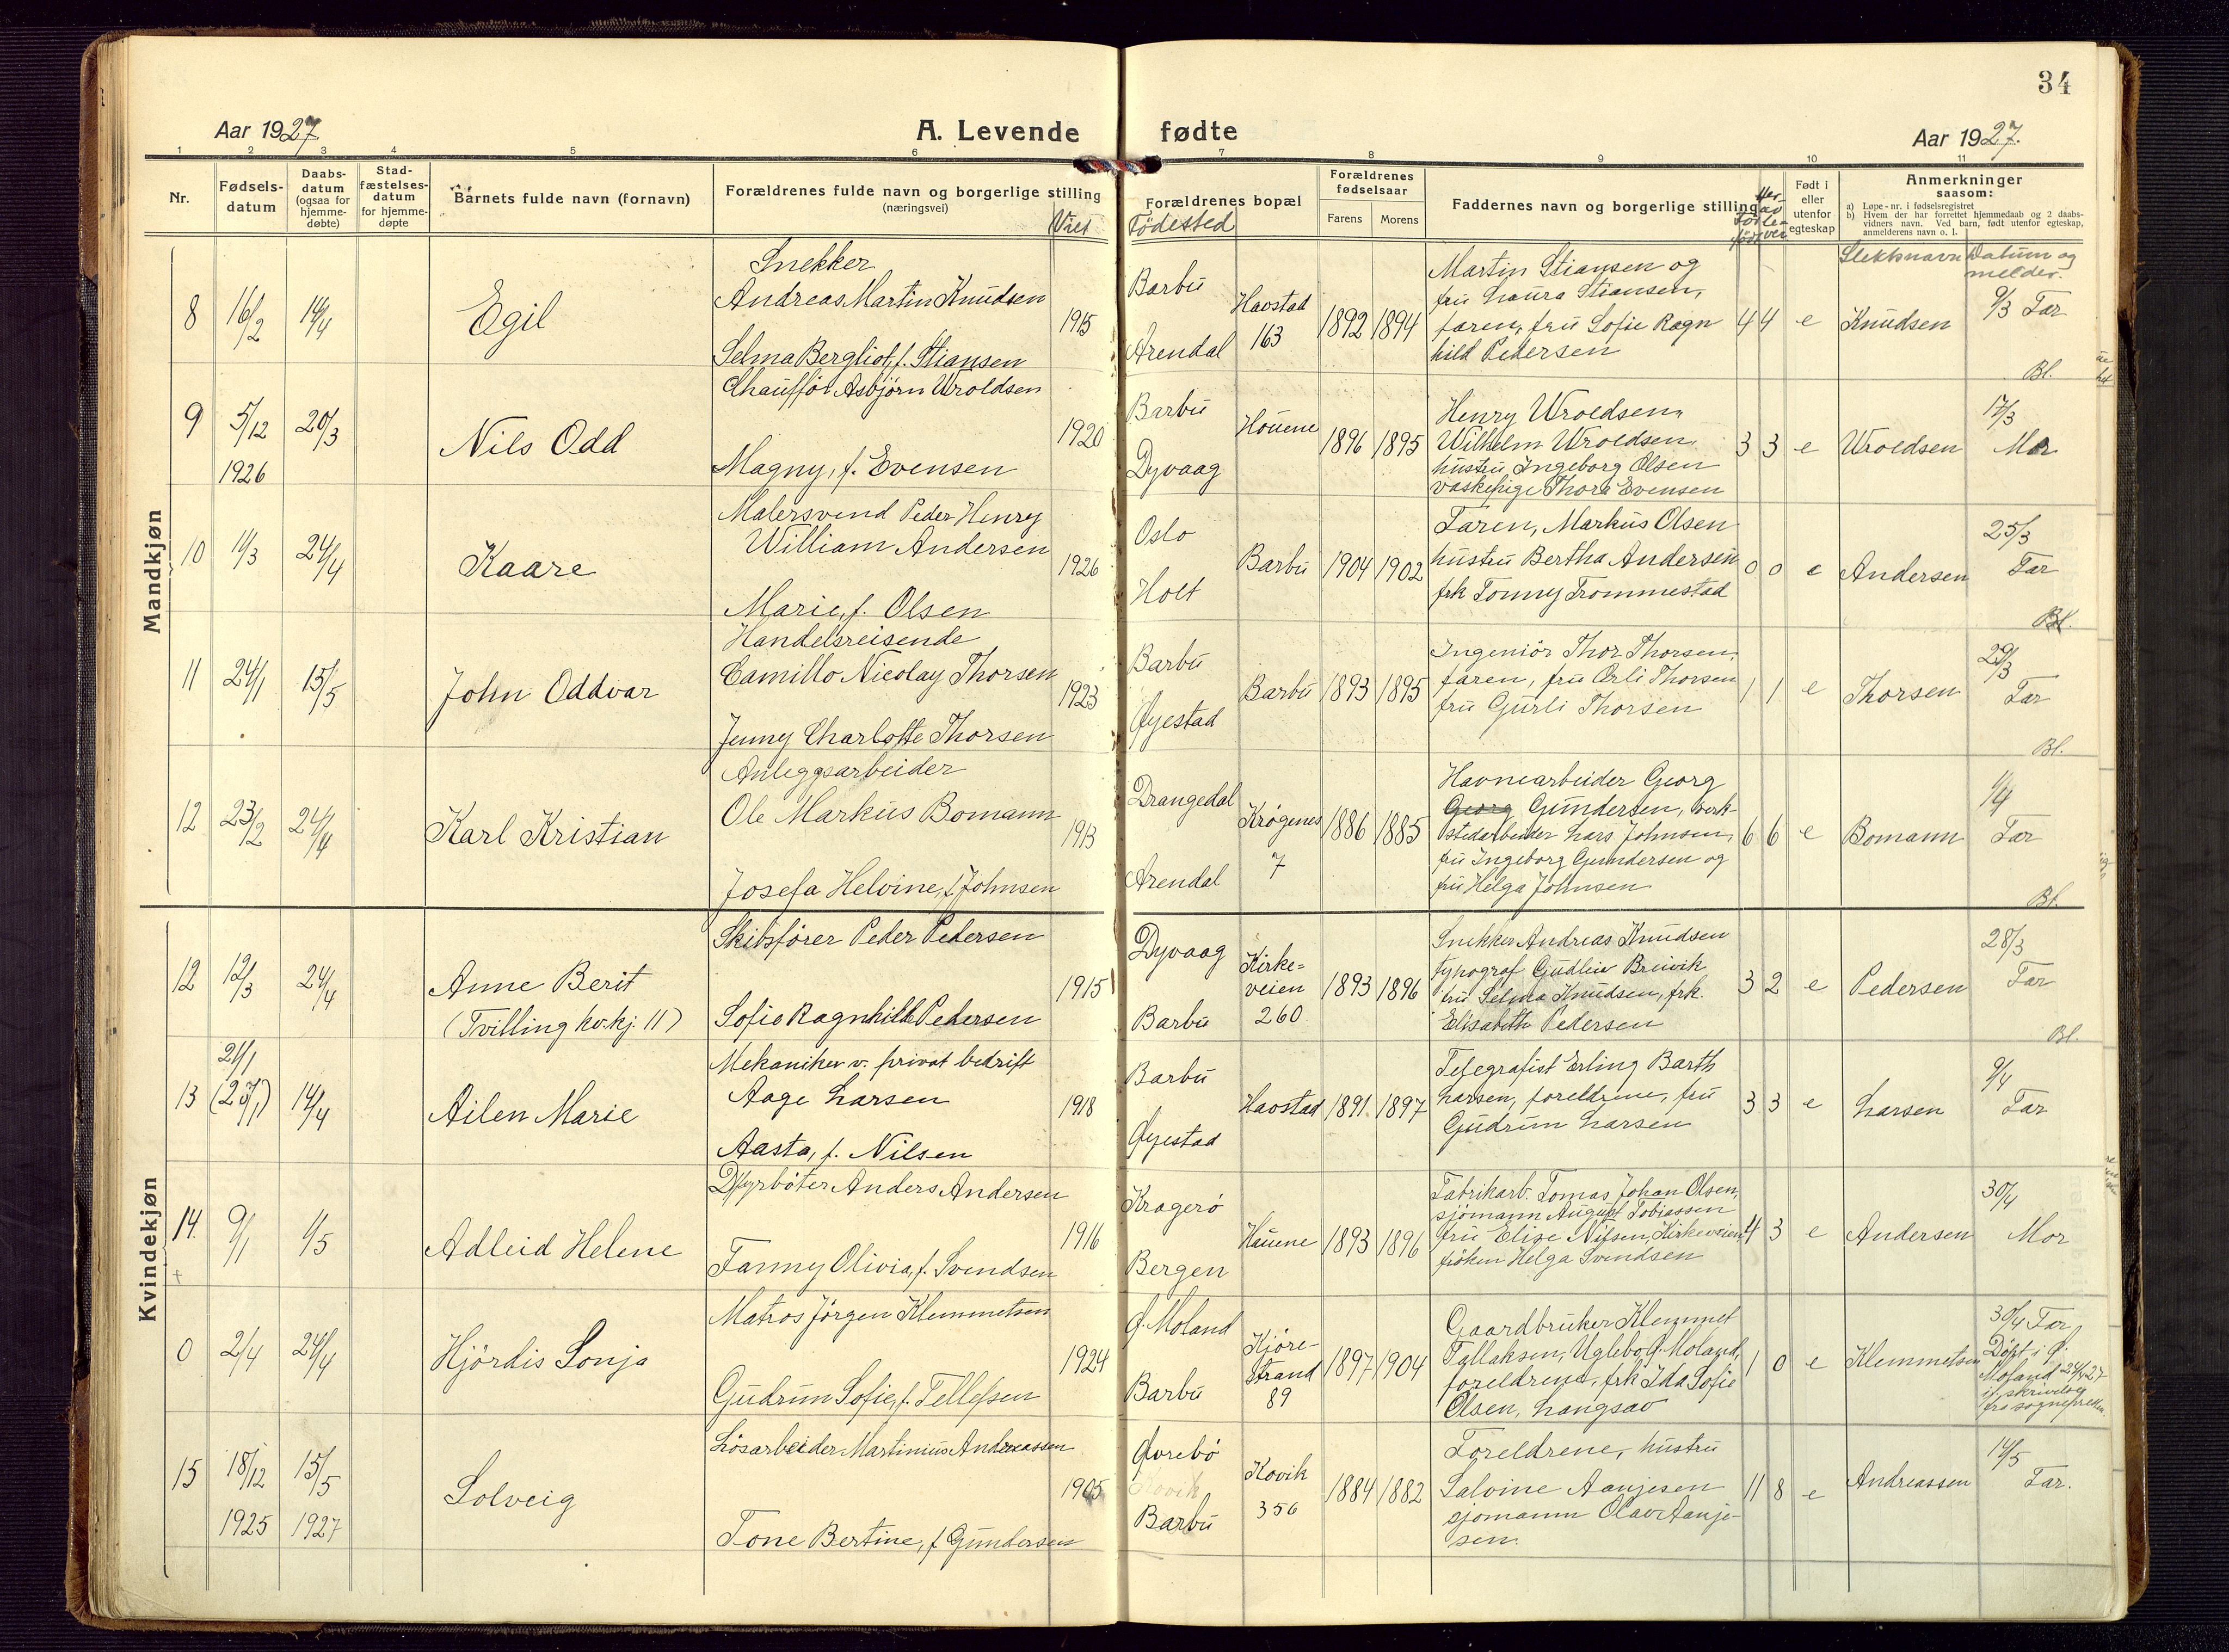 34
Aar 1927
A. Levende fødte
Aar 1927.
1 2 3 4 5 6 7 8 9 10 11
Nr.
Fødsels-
datum
Daabs-
datum
(ogsaa for
hjemme-
døbte)
Stad-
fæstelses-
datum
for hjemme-
døpte
Barnets fulde navn (fornavn)
Forældrenes fulde navn og borgerlige stilling
(næringsvei)
Viet
Forældrenes bopæl
Fødested
Forældrenes
fødselsaar
Farens
Morens
Faddernes navn og borgerlige stilling
Født i
eller
utenfor
egteskap
Anmerkninger
saasom:
a) Løpe-nr. i fødselsregistret
b) Hvem der har forrettet hjemmedaab og 2 daabs-
vidners navn. Ved barn, født utenfor egteskap,
anmelderens navn o. l.
Slektsnavn
Datum og
melder.
Mandkjøn
8
16/2
14/4
Egil
Snekker
Andreas Martin Knudsen
Selma Bergliot, f. Stiansen
1915
Barbu
Arendal
Havstad
163
1892
1894
Martin Stiansen og
fru Laura Stiansen,
faren, fru Sofie Ragn
hild Pedersen
4 4
e
Knudsen
9/3 Far
Bl.
9
5/12
1926
20/3
Nils Odd
Chauffør Asbjørn Uroldsen
Magny, f. Evensen
1920
Barbu
Dyvaag
Houene
1896
1895
Henry Uroldsen,
Wilhelm Uroldsen,
hustru Ingeborg Olsen
vaskepige Thora Evensen
3 3
e
Uroldsen
17/3
Mor
10
11/3
24/4
Kaare
Malersvend Peder Henry
William Andersen
Marie, f. Olsen
1926
Oslo
Holt
Barbu
1904
1902
Faren, Markus Olsen
hustru Bertha Andersen
frk Tonny Trommestad
0 0
e
Andersen
25/3
Far
Bl.
11
24/1
15/5
John Oddvar
Handelsreisende
Camillo Nicolay Thorsen
Jenny Charlotte Thorsen
1923
Barbu
Øyestad
Barbu
1893
1895
Ingeniör Thor Thorsen,
faren, fru Orli Thorsen
fru Gurli Thorsen
1 1
e
Thorsen
29/3
Far
Bl.
12
23/2
24/4
Karl Kristian
Anleggsarbeider
Ole Markus Bomann
Josefa Helvine, f. Johnsen
1913
Drangedal
Arendal
Krøgenes
7
1886
1885
Havnearbeider Georg
Georg Gundersen, verk-
stedarbeider Lars Johnsen,
fru Ingeborg Gundersen og
fru Helga Johnsen
6 6
e
Bomann
1/4
Far
Bl.
Kvindekjøn
12
12/3
24/4
Anne Berit
(Tvilling kv.kj. 11)
Skibsfører Peder Pedersen
Sofie Ragnhild Pedersen
1915
Dyvaag
Barbu
Kirke-
veien
260
1893
1896
Snekker Andreas Knudsen
typograf Gudlin Breivik
fru Selma Knudsen, frk.
Elisabeth Pedersen
3 2
e
Pedersen
28/3
Far
Bl.
13
21/1
14/4
Ailen Marie
Mekaniker v. privat bedrift
Aage Larsen
Aasta, f. Nilsen
1918
Barbu
Øyestad
Havstad
1891
1897
Telegrafist Erling Barth
Larsen, foreldrene, fru
Gudrun Larsen
3 3
e
Larsen
9/4
Far
14.
+
9/1
1/5
Adleid Helene
Fyrbøter Anders Andersen
Fanny Olivia, f. Svendsen
1916
Kragerø
Bergen
Hauene
1893
1896
Fabrikarb. Tomas Johan Olsen,
sjömann August Tobiassen
fru Elise Nilsen, Kirkeveien
frøken Helga Svendsen
4 3
e
Andersen
30/4
Mor
0
2/4
24/4
Hjördis Sonja
Matros Jørgen Klemmetsen
Gudrun Sofie, f. Tellefsen
1924
Ø. Moland
Barbu
Kjöre-
strand
89
1897
1904
Gaardbruker Klemmet
Tallaksen, Uglebo Ø. Moland,
foreldrene, frk Ida Sofie
Olsen, Langsav
1 0
e
Klemmetsen
30/4 Far
Döpt i Ø.
Moland 24/4 27
if. skrivelse
fra sognepresten.
15
18/12
1925
15/5
1927
Solveig
Løsarbeider Martinius Andreassen
Tone Bertine, f. Gundersen
1905
Øvrebö
Barbu
Kovik
356
1884
1882
Foreldrene, hustru
Salvine Aanjesen
sjømann Olav Aanje-
sen.
11 8
e
Andreassen
14/5
Far.